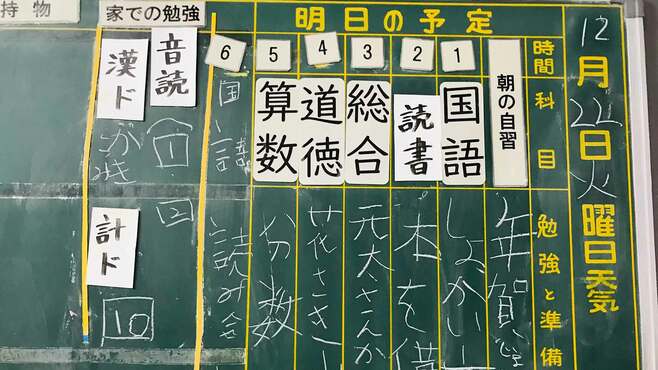 持物
家での勉強
明日の予定
12月22日火曜日天気
時間
科目
勉強と準備
朝の自習
年賀
1
国語
しょうかい
2
読書
本を借
3
総合
元太さんが
4
道徳
花さき
5
算数
分数
6
国語
読み会
音読
1
2
漢ド
計ド
10